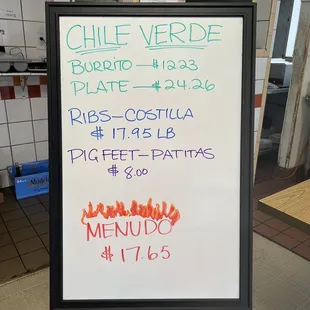 CHILE VERDE
BURRITO — $12.23
PLATE — $24.26
RIBS—COSTILLA
$17.95 LB
PIG FEET—PATITAS
$8.00
MENUDO
$17.65